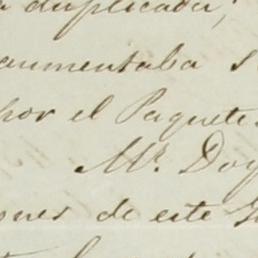 a duplicada;
aumentaba s
por el Paquete
Mr. Doy
ones de este